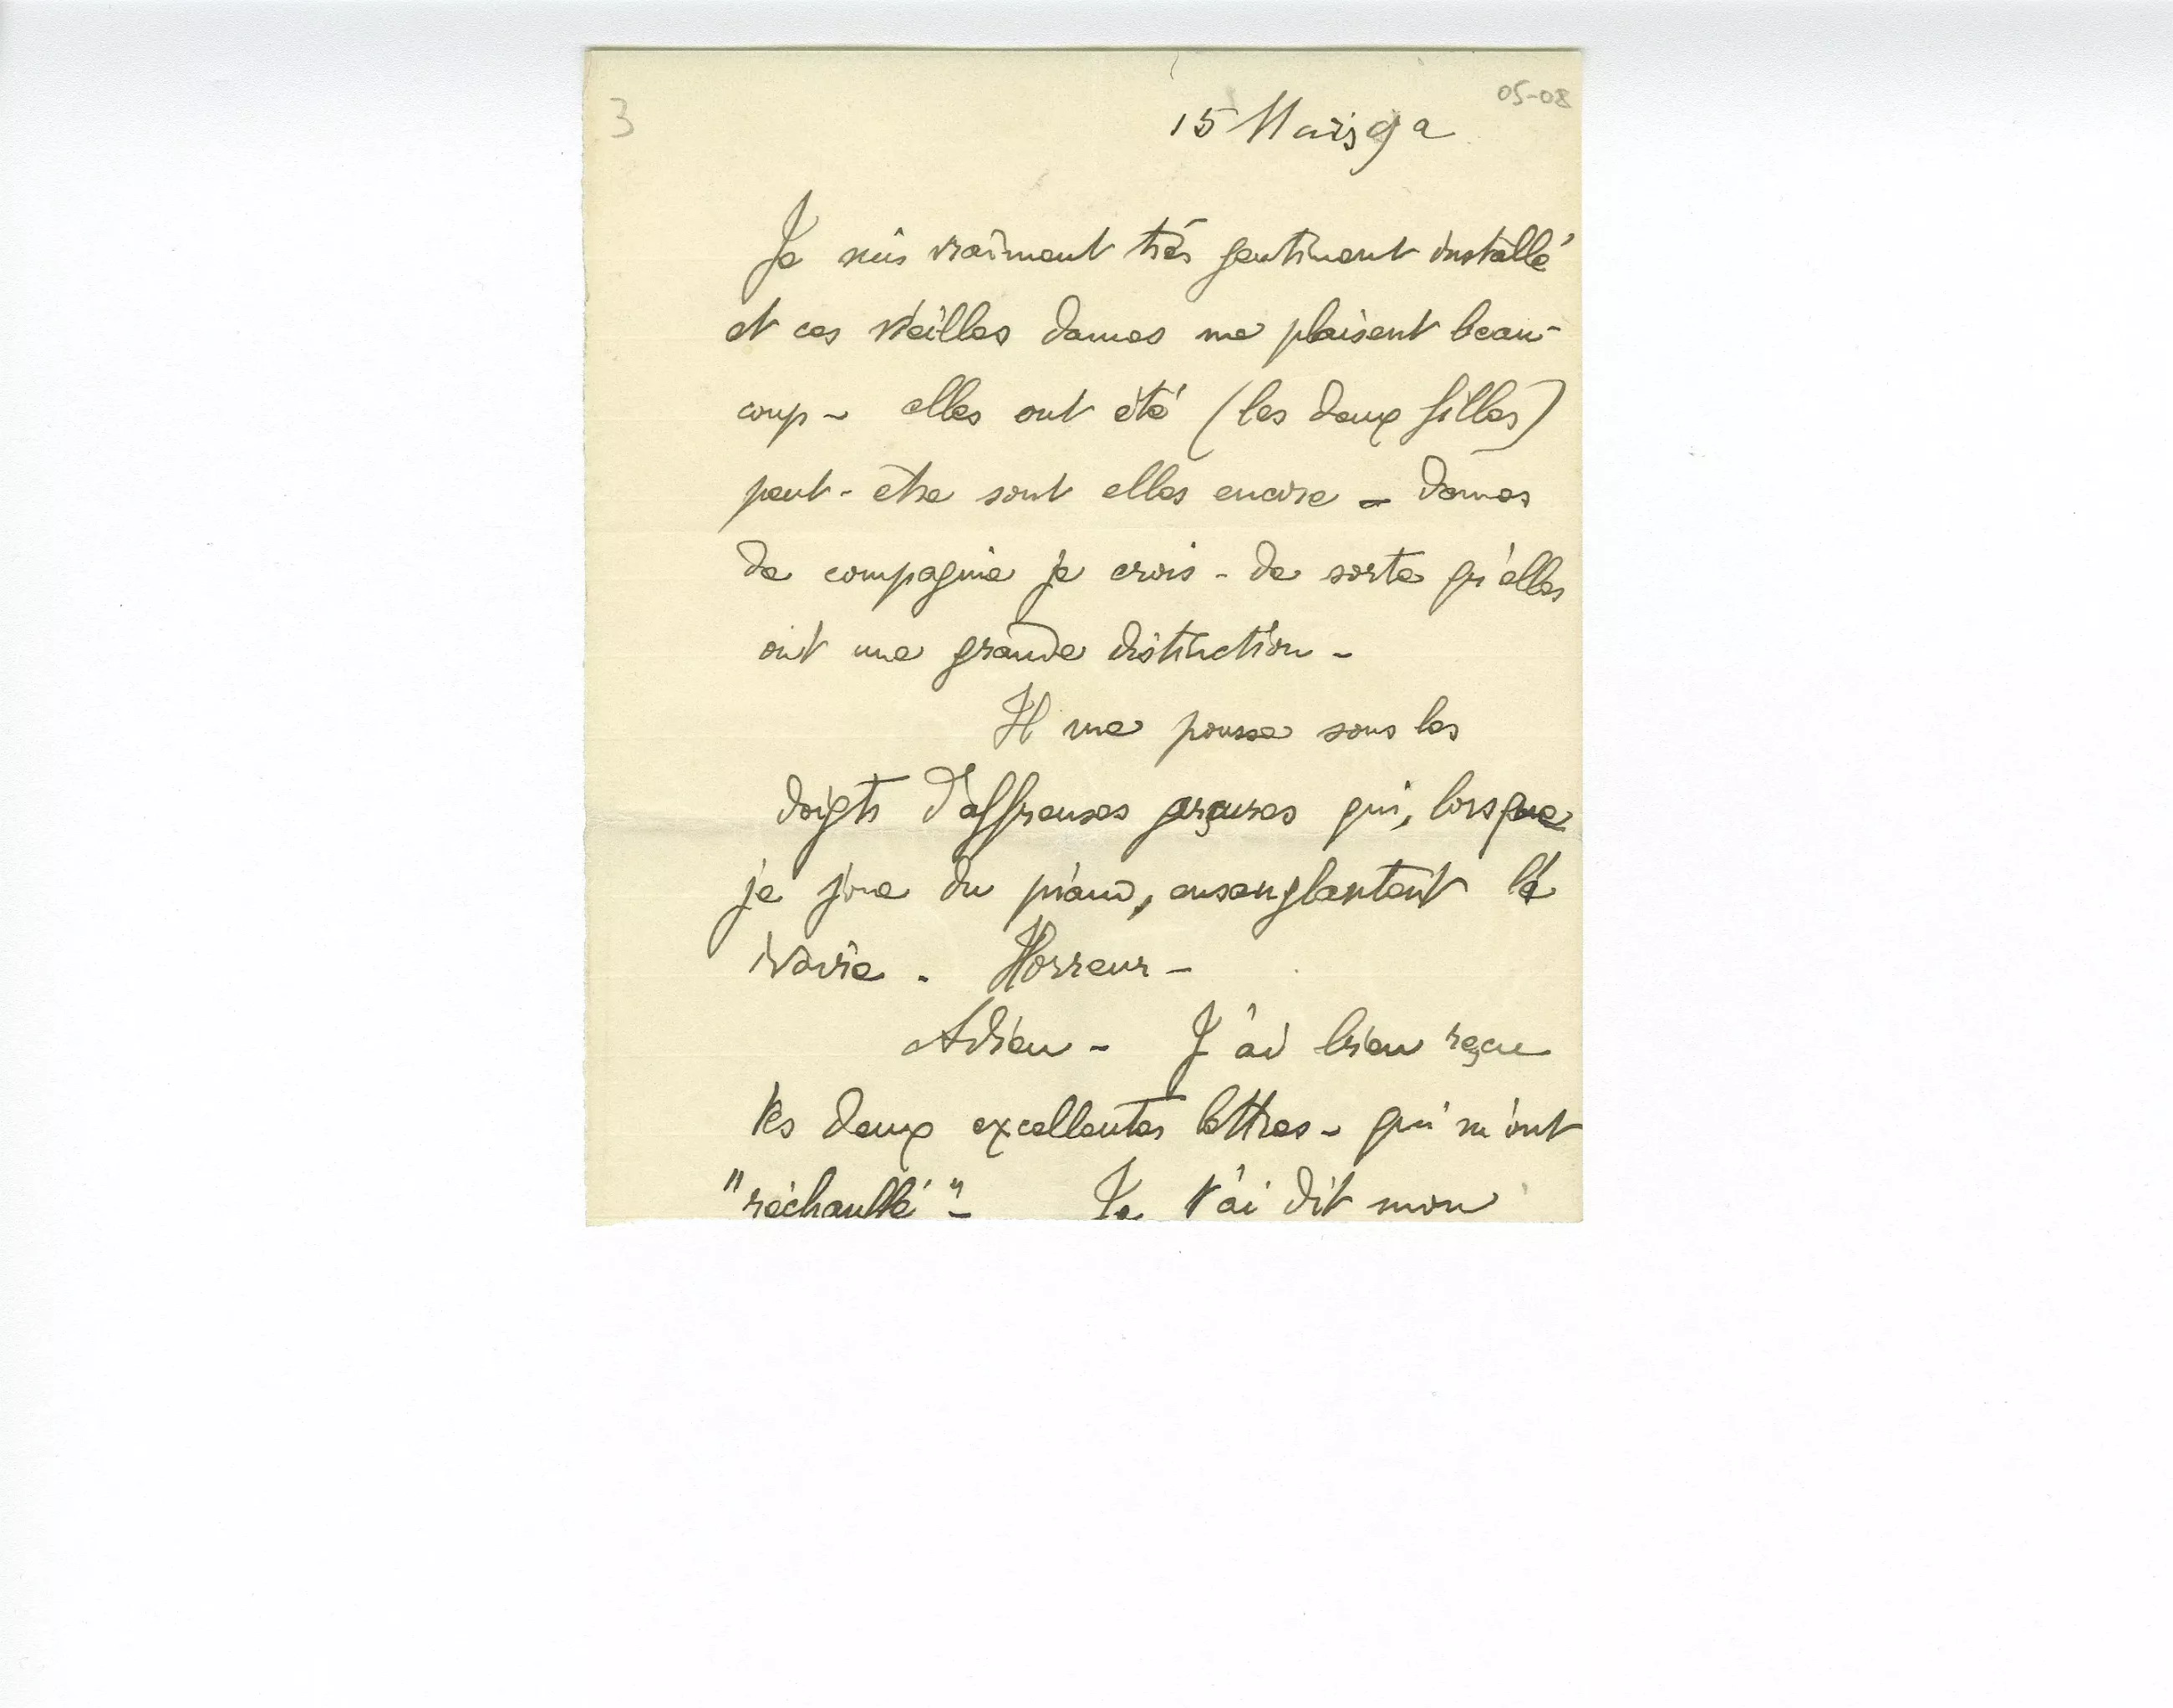 3
05-08
15 Mars 92
Je suis vraiment très gentiment installé
et ces vieilles dames me plaisent beau-
coup - elles ont été (les deux filles)
peut-être sont elles encore - dames
de compagnie je crois - de sorte qu'elles
ont une grande distinction -
Il me pousse sous les
doigts d'affreuses gerçures qui, lorsque
je joue du piano, ensanglantent l'
ivoire. Horreur -
Adieu - J'ai bien reçu
tes deux excellentes lettres - qui m'ont
"réchauffé" - Je t'ai dit mon